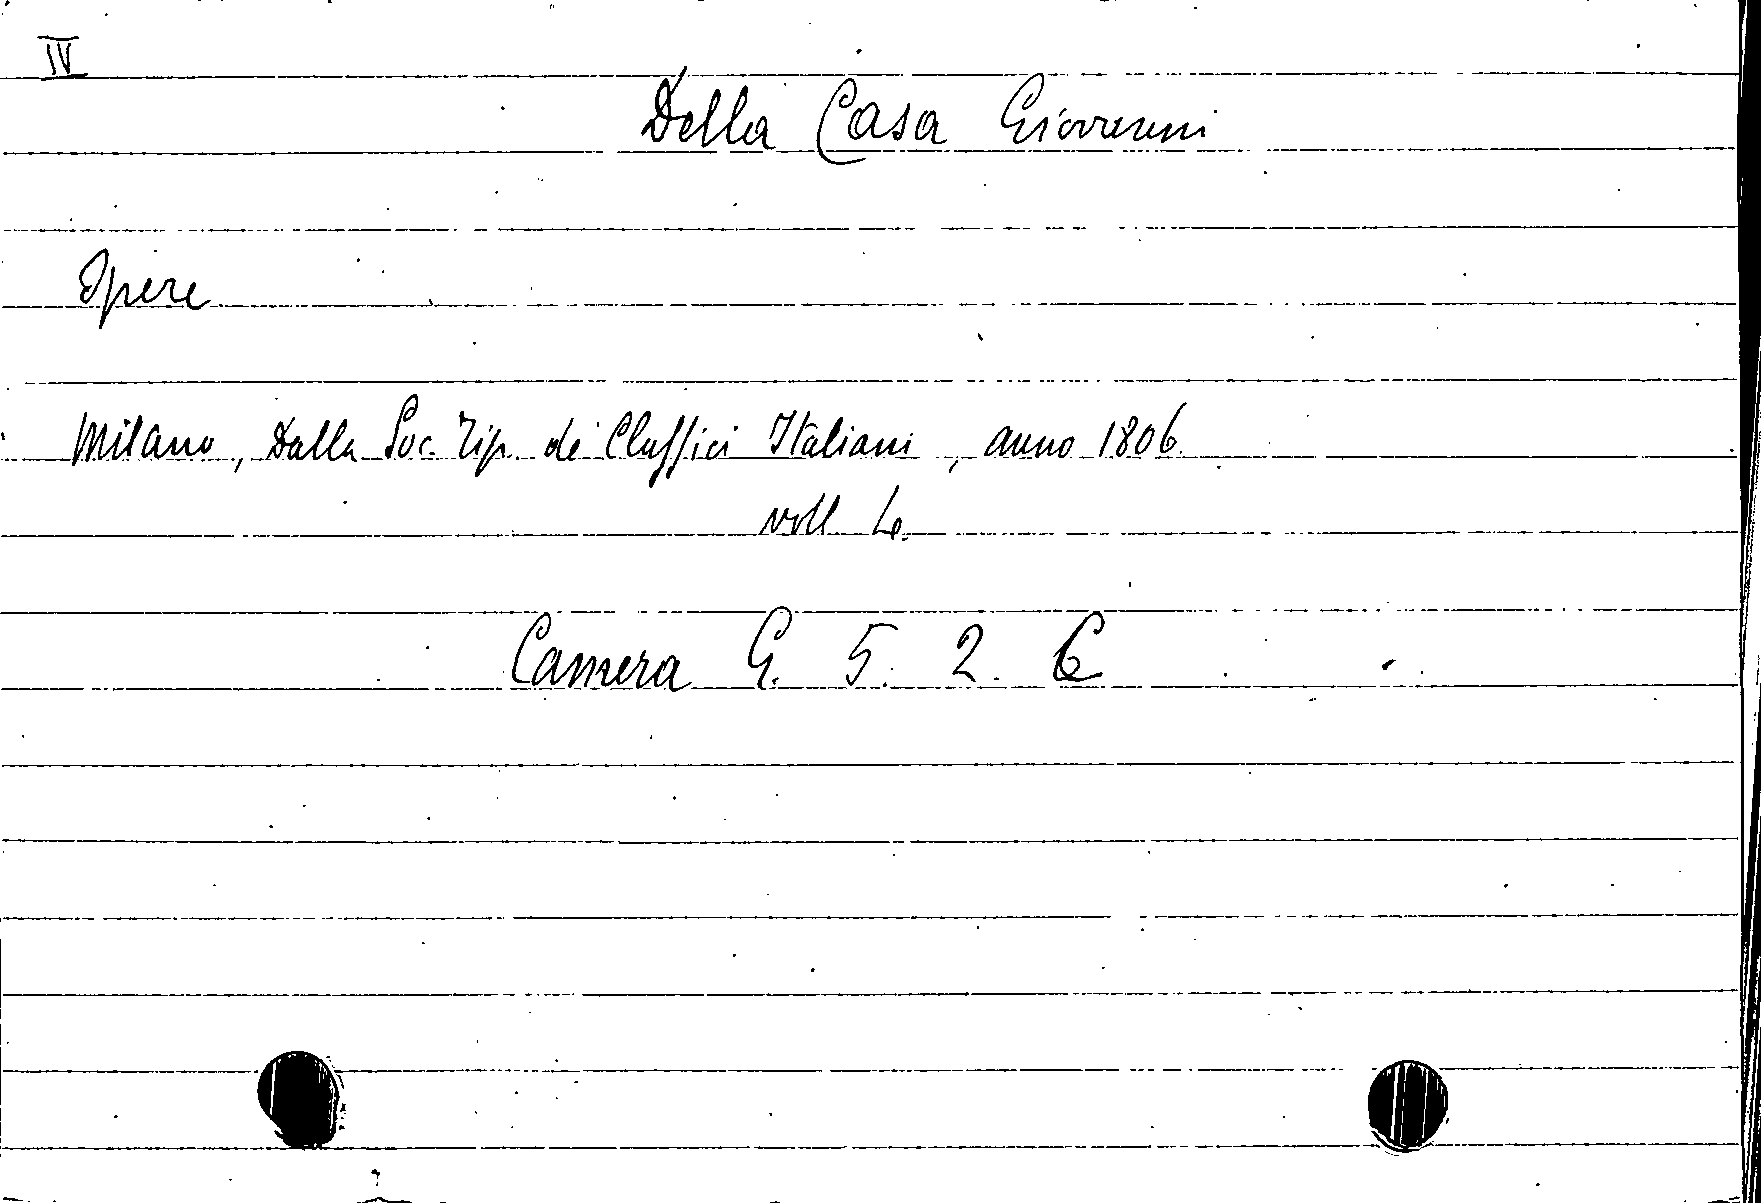 IV
Della Casa Giovanni
Opere
Milano, Dalla Soc. Tip. de' Claſſici Italiani, anno 1806.
voll. 4.
Camera G. 5. 2.